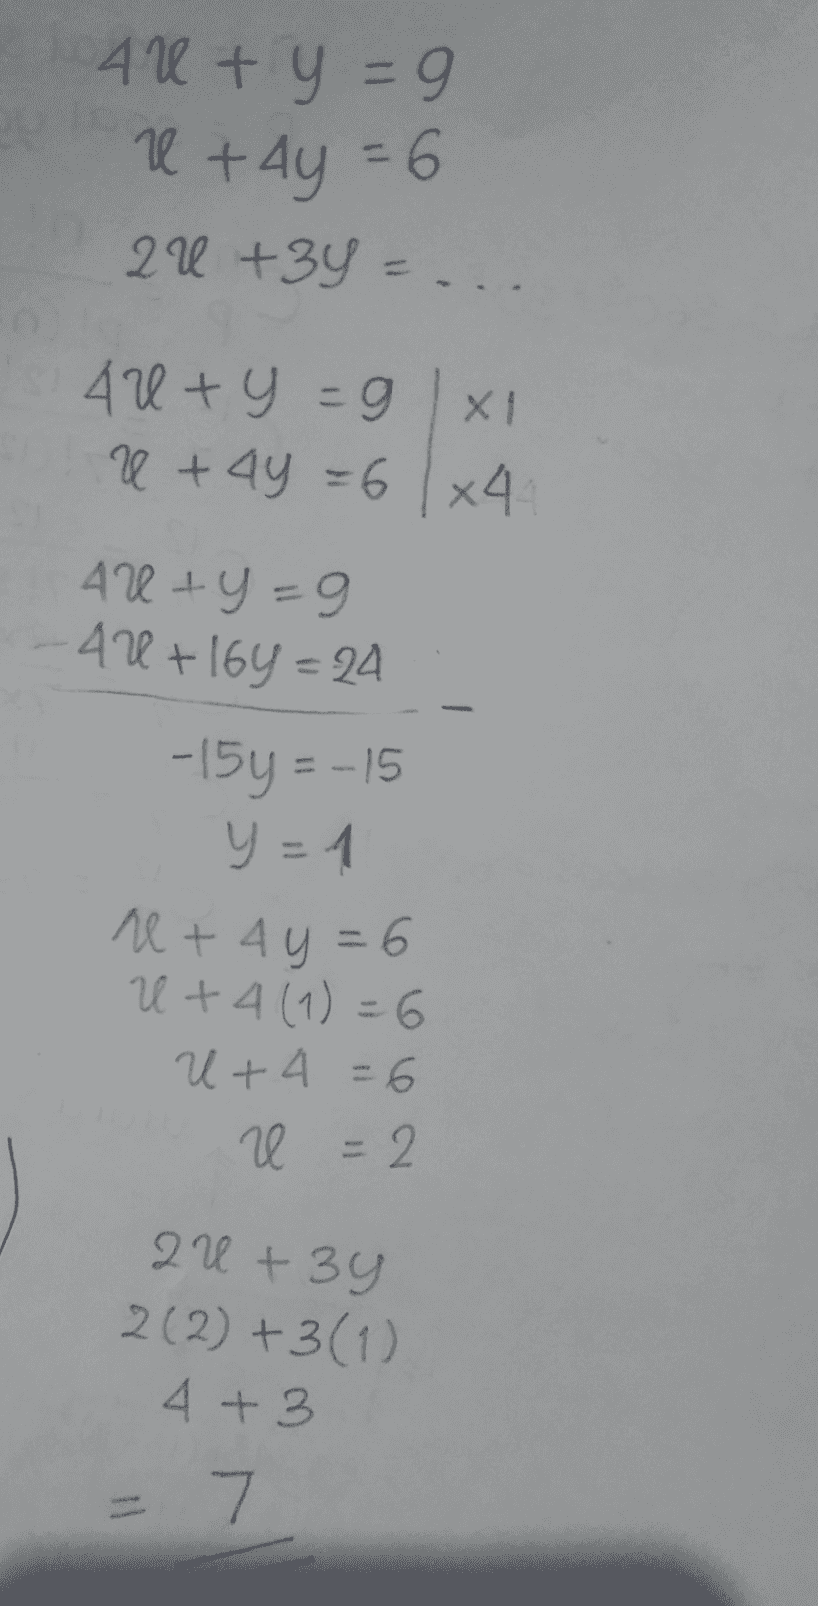 4x + y = 9
x + 4y = 6
2x + 3y = ...
4x + y = 9 | ×1
x + 4y = 6 | ×4
4x + y = 9
4x + 16y = 24 -
-15y = -15
y = 1
x + 4y = 6
x + 4(1) = 6
x + 4 = 6
x = 2
2x + 3y
2(2) + 3(1)
4 + 3
= 7